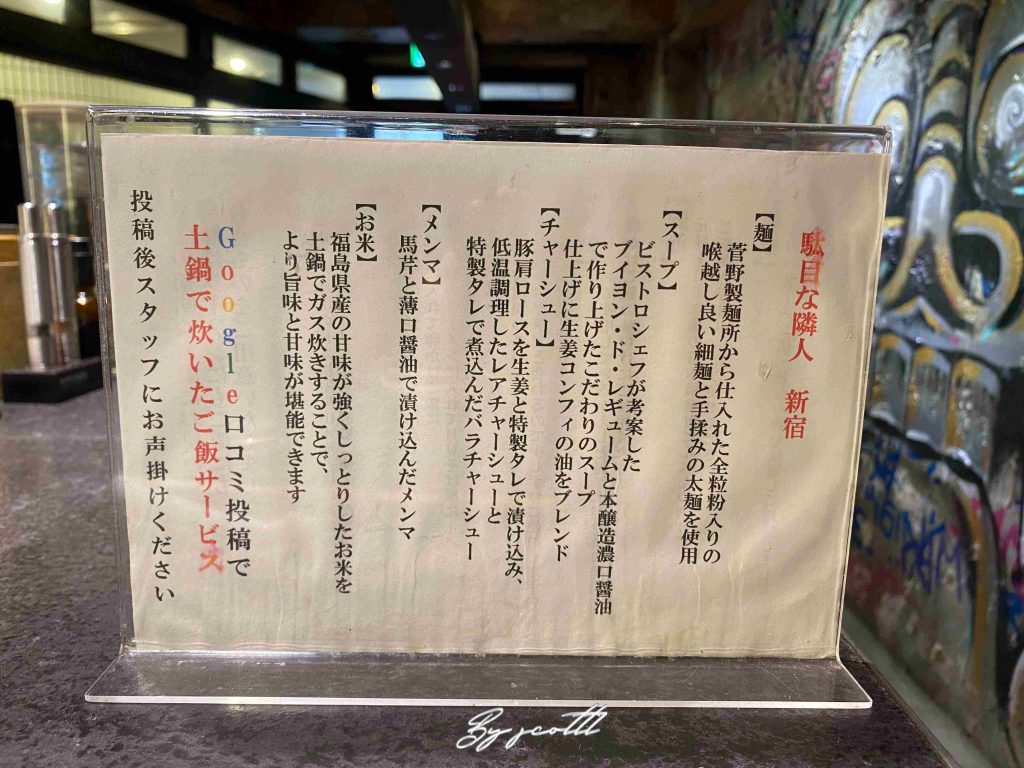 駄目な隣人 新宿
【麺】
菅野製麺所から仕入れた全粒粉入りの
喉越し良い細麺と手揉みの太麺を使用
【スープ】
ビストロシェフが考案した
ブイヨン・ド・レギュームと本醸造濃口醤油
で作り上げたこだわりのスープ
仕上げに生姜コンフィの油をブレンド
【チャーシュー】
豚肩ロースを生姜と特製タレで漬け込み、
低温調理したレアチャーシューと
特製タレで煮込んだバラチャーシュー
【メンマ】
馬芹と薄口醤油で漬け込んだメンマ
【お米】
福島県産の甘味が強くしっとりしたお米を
土鍋でガス炊きすることで、
より旨味と甘味が堪能できます
Google口コミ投稿で
土鍋で炊いたご飯サービス
投稿後スタッフにお声掛けください
By scottt